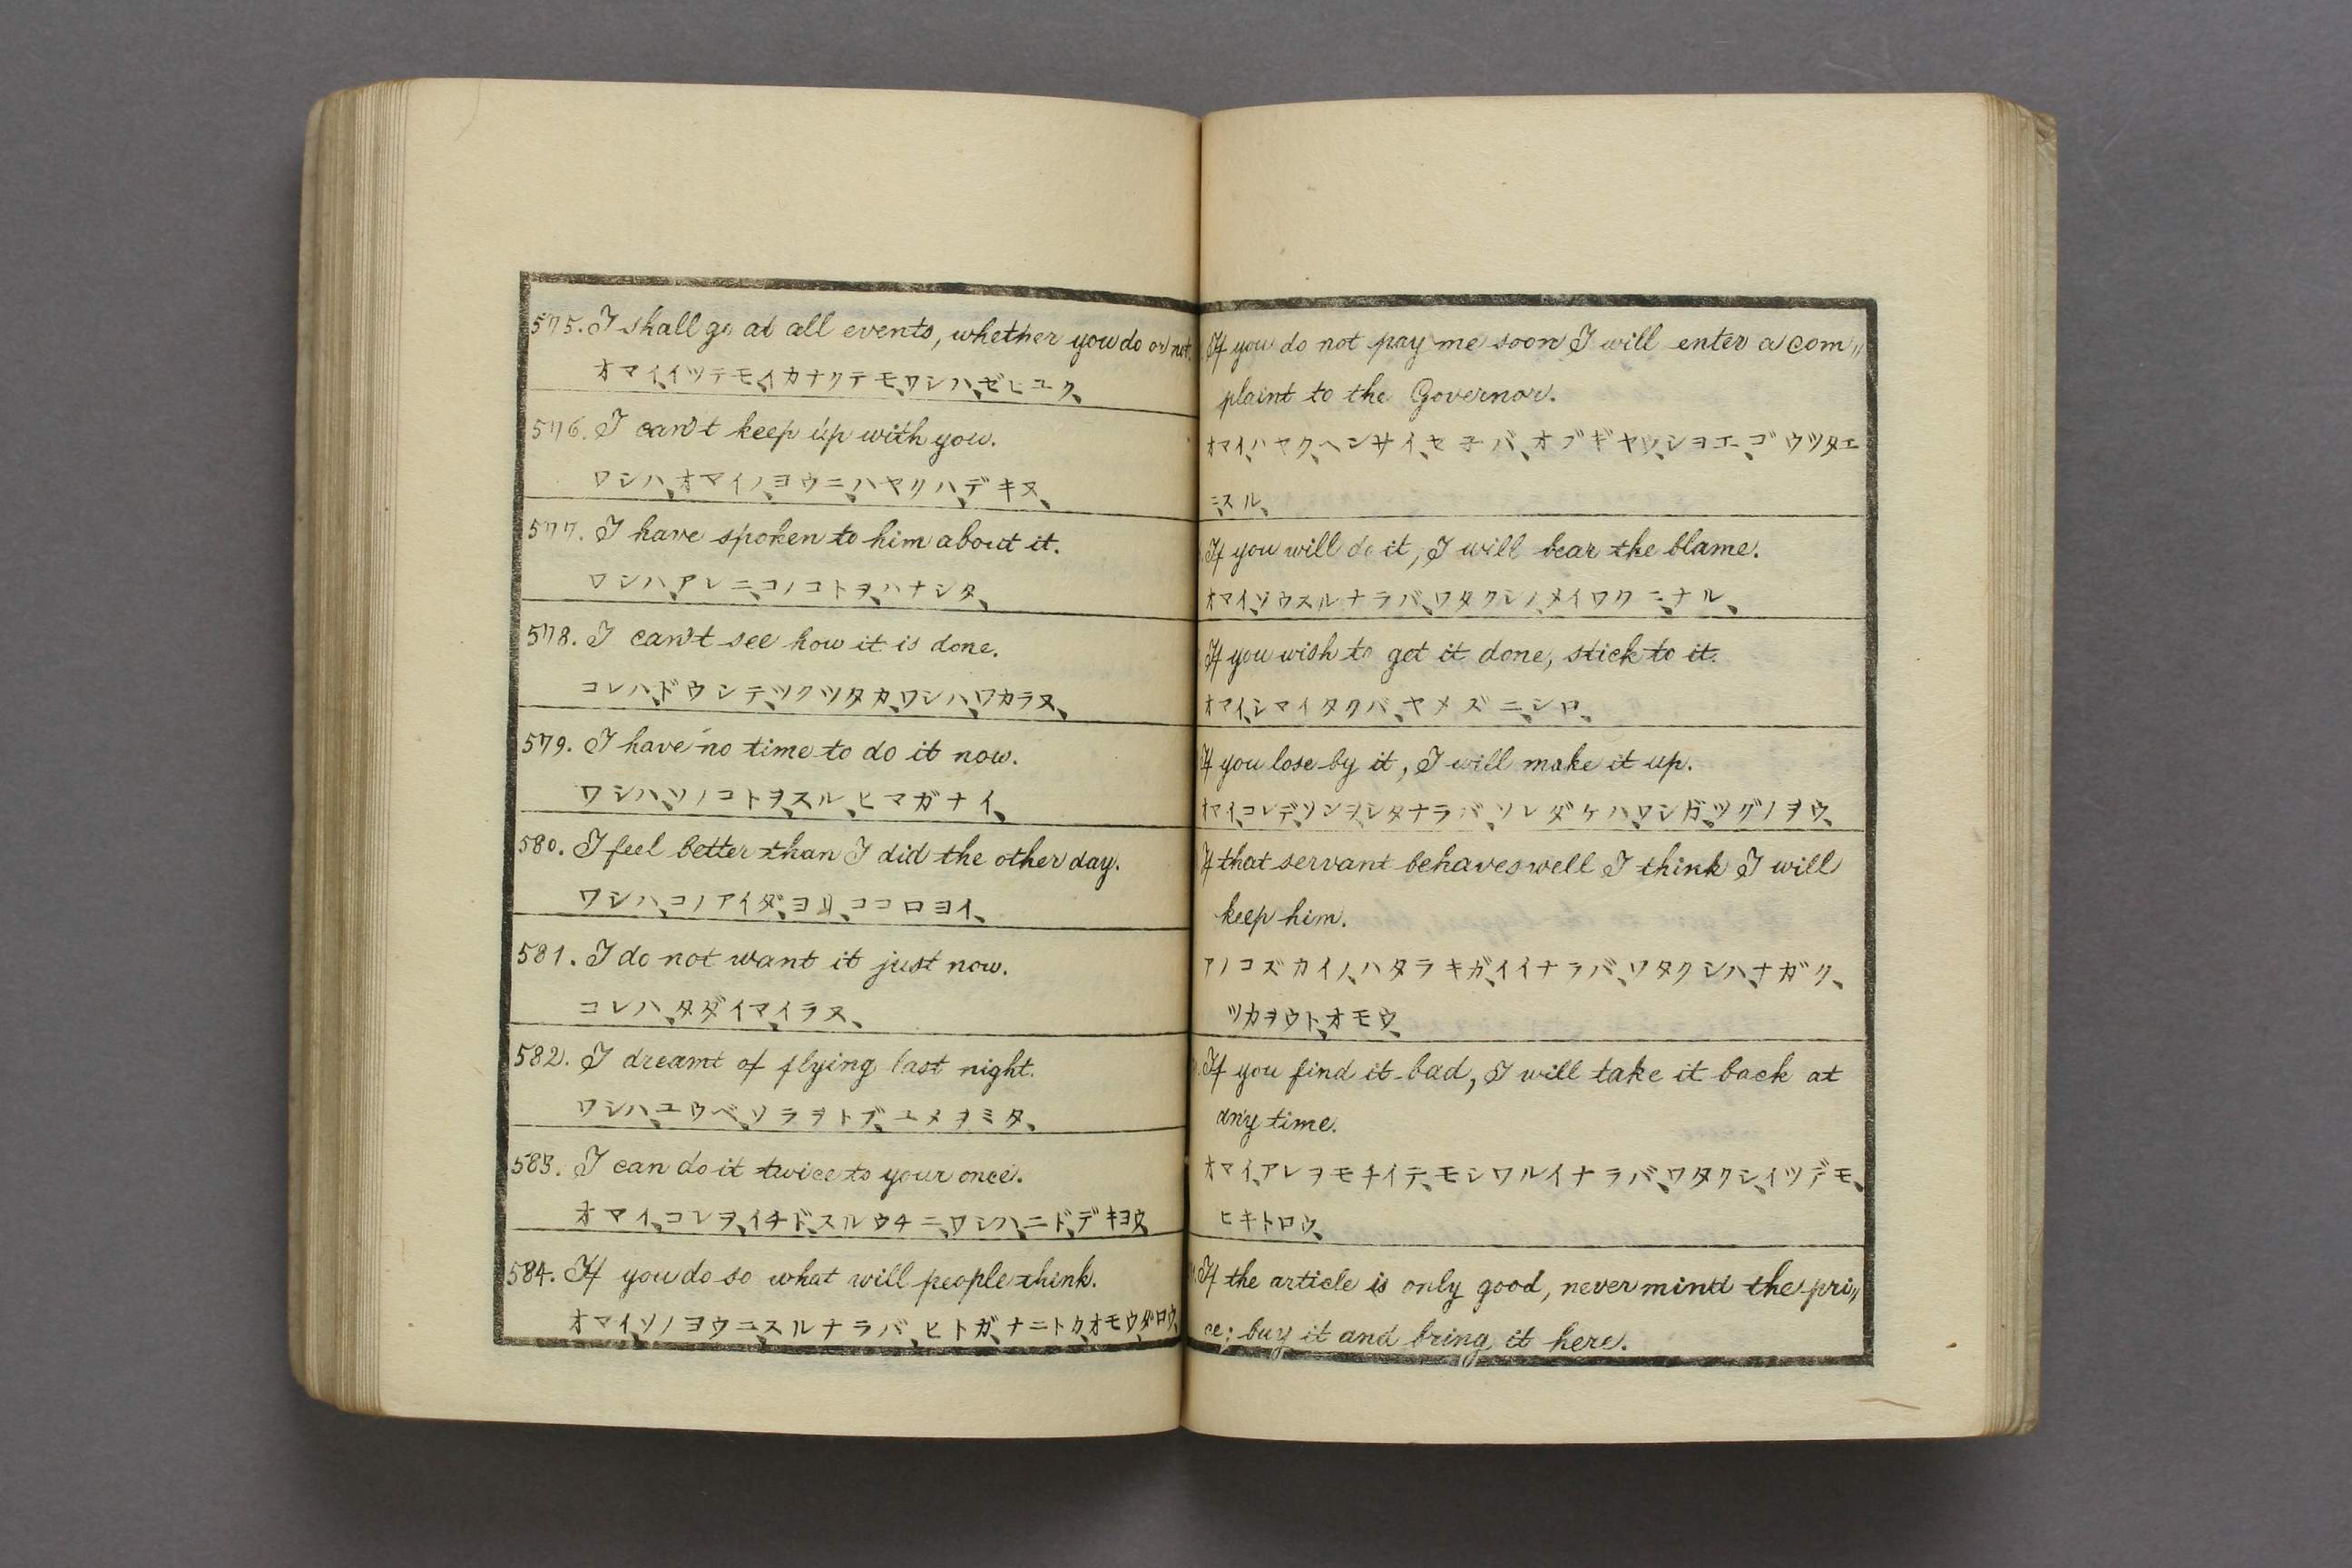 575. I shall go at all events, whether you do or not.
オマイ、イツテモ、イカナクテモ、ワシハ、ゼヒユク、
576. I can't keep up with you.
ワシハ、オマイノ、ヨウニ、ハヤクハ、デキヌ、
577. I have spoken to him about it.
ワシハ、アレニ、コノコトヲ、ハナシタ、
578. I can't see how it is done.
コレハ、ドウシテ、ツクツタカ、ワシハ、ワカラヌ、
579. I have no time to do it now.
ワシハ、ソノコトヲ、スル、ヒマガナイ、
580. I feel better than I did the other day.
ワシハ、コノアイダ、ヨリ、ココロヨイ、
581. I do not want it just now.
コレハ、タダイマ、イラヌ、
582. I dreamt of flying last night.
ワシハ、ユウベ、ソラヲトブ、ユメヲミタ、
583. I can do it twice to your once.
オマイ、コレヲ、イチド、スルウチニ、ワシハ、ニド、デキヨウ
584. If you do so what will people think.
オマイ、ソノヨウニ、スルナラバ、ヒトガ、ナニトカ、オモウ、ダロウ、
If you do not pay me soon I will enter a com〃
plaint to the Governor.
オマイ、ハヤク、ヘンサイ、セネバ、オブギヤウ、シヨエ、ゴウツタエ
ニ、スル、
If you will do it, I will bear the blame.
オマイ、ソウスルナラバ、ワタクシノ、メイワクニナル、
If you wish to get it done, stick to it.
オマイ、シマイタクバ、ヤメズニ、シロ、
If you lose by it, I will make it up.
オマイ、コレデ、ソンヲ、シタナラバ、ソレダケハ、ワシガ、ツグノヲウ、
If that servant behaves well I think I will
keep him.
アノコズカイノ、ハタラキガ、イイナラバ、ワタクシハ、ナガク、
ツカヲウト、オモウ、
If you find it bad, I will take it back at
any time.
オマイ、アレヲモチイテ、モシワルイナラバ、ワタクシ、イツデモ、
ヒキトロウ、
If the article is only good, never mind the pri〃
ce; buy it and bring it here.